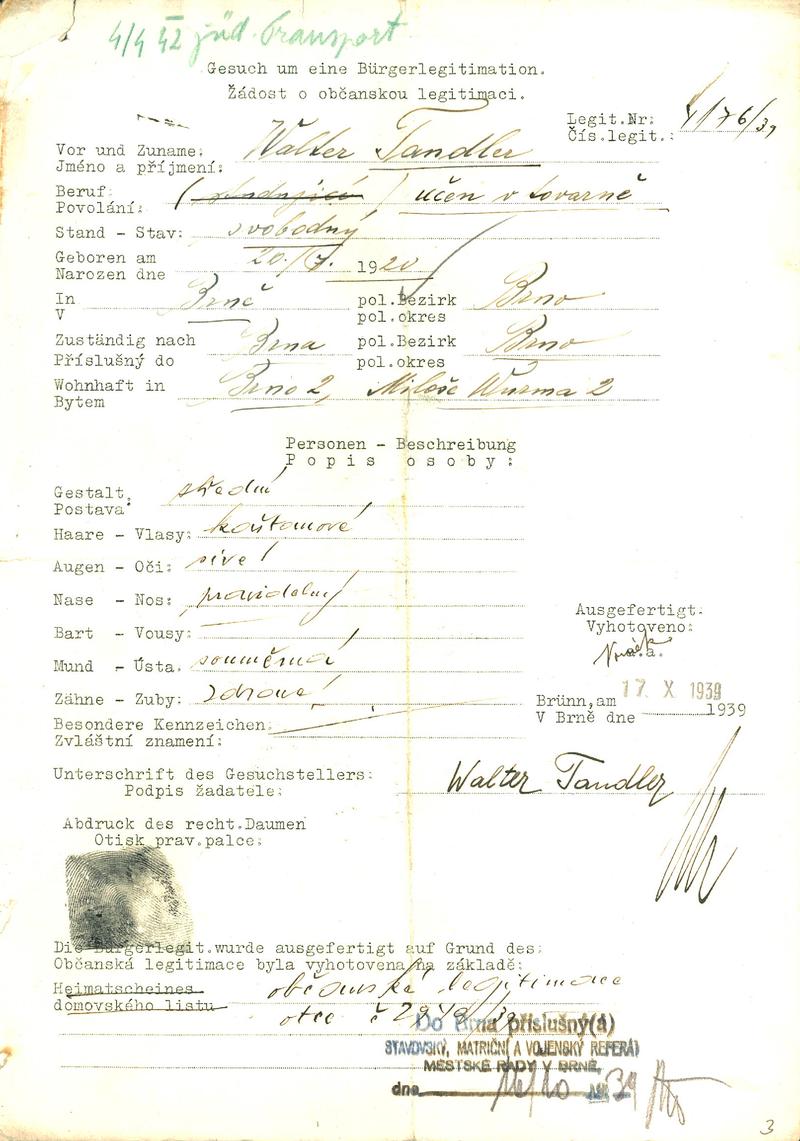 4/4 42 jüd. Transport
Gesuch um eine Bürgerlegitimation.
Žádost o občanskou legitimaci.
Legit.Nr:
Čís.legit.: 4176/39
Vor und Zuname: Walter Tandler
Jméno a příjmení:
Beruf: (studující) učen v továrně
Povolání:
Stand - Stav: svobodný
Geboren am 20./7. 1920
Narozen dne
In Brně pol.Bezirk Brno
V pol.okres
Zuständig nach Brna pol.Bezirk Brno
Příslušný do pol.okres
Wohnhaft in Brno 2, Miloše Wurma 2
Bytem
Personen - Beschreibung
Popis osoby:
Gestalt, střední
Postava:
Haare - Vlasy: kaštanové
Augen - Oči: sivé
Nase - Nos: pravidelný
Ausgefertigt:
Bart - Vousy:
Vyhotoveno:
Mund - Ústa. souměrná
Zähne - Zuby: zdravé
Brünn,am 17. X 1939
V Brně dne 1939
Besondere Kennzeichen:
Zvláštní znamení:
Unterschrift des Gesuchstellers: Walter Tandler
Podpis žadatele:
Abdruck des recht.Daumen
Otisk prav.palce:
Die Bürgerlegit.wurde ausgefertigt auf Grund des:
Občanská legitimace byla vyhotovena na základě:
Heimatscheines občanské legitimace
domovského listu otce č
Do Brna příslušný(á)
STAVOVSKÝ, MATRIČNÍ A VOJENSKÝ REFERÁT
MĚSTSKÉ RADY V BRNĚ,
dne 39
3